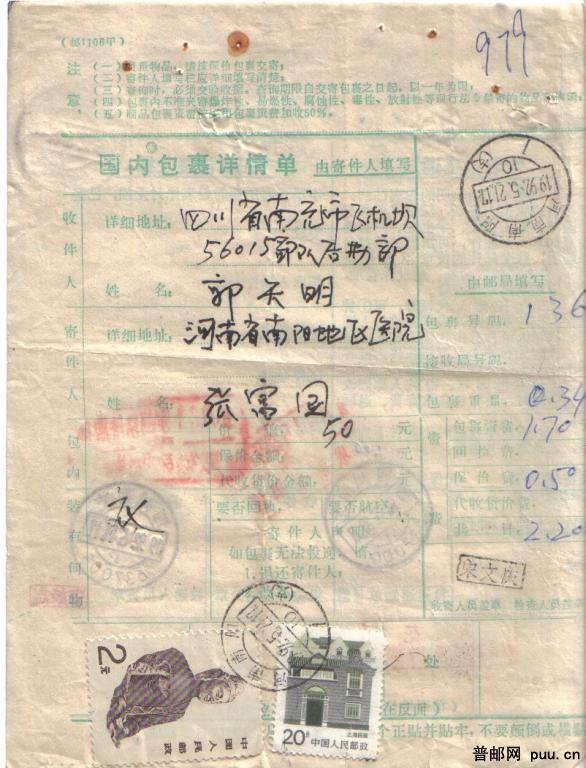 (邮1106甲)
979
注意
(二)寄件人填写各栏应详细填写清楚;
(三)查询时,必须交验收据。查询期限自交寄包裹之日起,以一年为限;
(五)商品包裹资费按照包裹资费加收50%。
国内包裹详情单 由寄件人填写
河南南阳
1992.5.21.17
10
收件人
详细地址: 四川省南充市飞机坝
56015部队后勤部
姓名: 郭天明
由邮局填写
寄件人
详细地址: 河南省南阳地区医院
姓名: 张富国
包裹号码: 136
接收局号码:
包裹重量: 0.34
包内装有何物
衣
价值: 50 元
保价金额: 元
代收货价金额: 元
要否回执: 要否航空:
寄件人声明
如包裹无法投递,请:
1.退还寄件人;
资费
包裹资费: 1.70
回执费:
保价费: 0.50
代收货价费:
共计: 2.20
收寄人员盖章 检查人员盖章
处
2元
中国人民邮政
20分
中国人民邮政
上海民居
在反面)
个正贴并贴牢,不要颠倒或横
普邮网 puu.cn